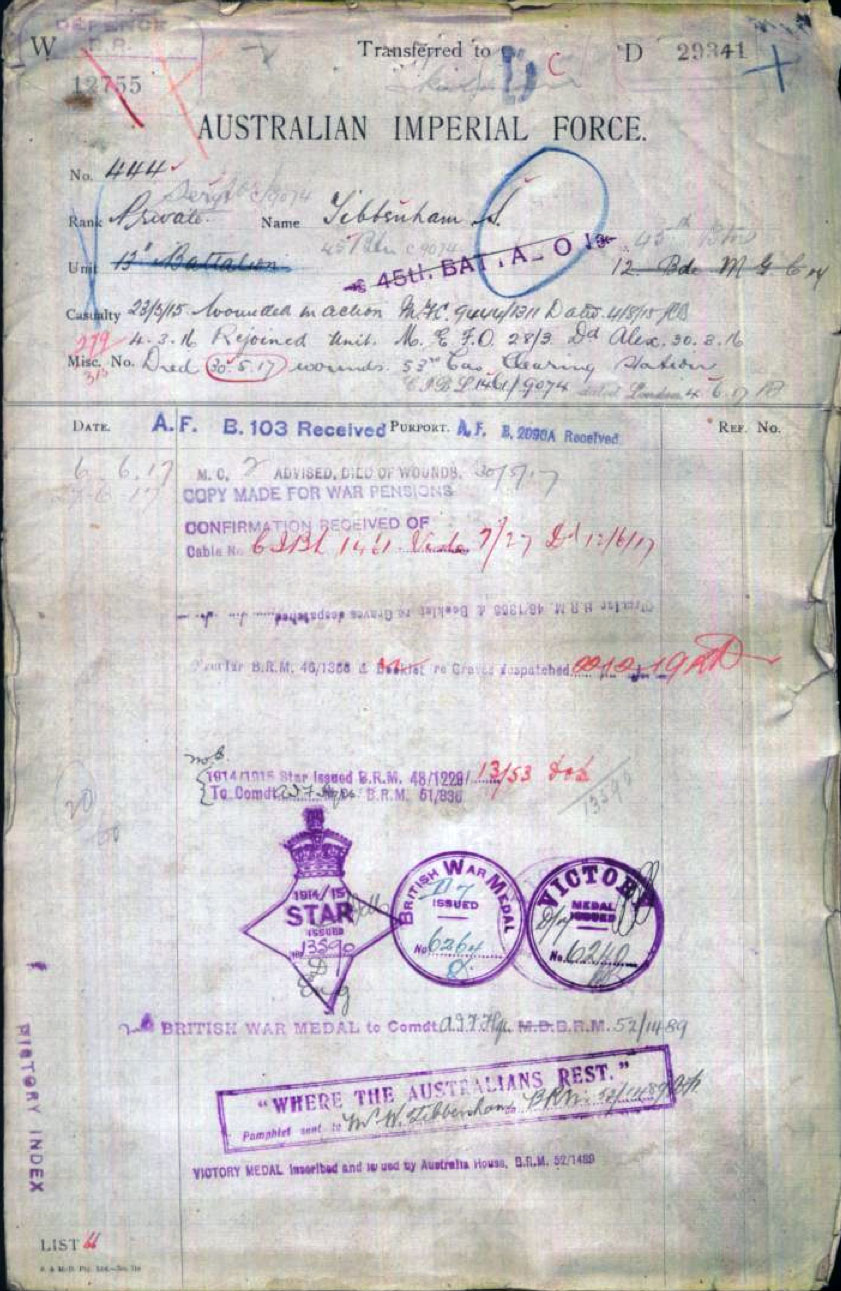 DEFENCE
W B.R. Transferred to D C D 29341
12755
AUSTRALIAN IMPERIAL FORCE.
No. 444
Sergt c/9074
Rank Private Name Tibbenham S.
45 Btn c 9074 45th Btn
Unit 13th Battalion 45th. BATTALION 12 Bde M G Coy
Casualty 23/5/15 Wounded in action Dated 4/8/15
279 4.3.16 Rejoined Unit. M.E.F.O. 28/3 Dd Alex. 30.3.16
Misc. No. Died 30.5.17 wounds. 53rd Cas. Clearing Station
313 1461/9074 dated London 4.6.17
DATE. A.F. B.103 Received PURPORT. A.F. B.2090A Received REF. No.
6.6.17 M.C. 2 ADVISED, DIED OF WOUNDS. 30/5/17
COPY MADE FOR WAR PENSIONS
CONFIRMATION RECEIVED OF
Cable No. 1461 7/27 Dd 12/6/17
Circular B.R.M. 46/1368 & Booklet re Graves despatched
Circular B.R.M. 46/1368 & Booklet re Graves despatched
1914/1915 Star Issued B.R.M. 48/1229/ 13/53
To Comdt. A.I.F. Hqrs. B.R.M. 51/836
13590
1914/15
STAR
ISSUED
No. 13590
BRITISH WAR MEDAL
ISSUED
No. 6264
VICTORY
MEDAL
ISSUED
No. 6240
BRITISH WAR MEDAL to Comdt A.I.F. Hqr. M.D.B.R.M. 52/1489
"WHERE THE AUSTRALIANS REST."
Pamphlet sent to Mr W. Tibbenham B.R.M. 52/1489
VICTORY MEDAL inscribed and issued by Australia House, B.R.M. 52/1489
HISTORY INDEX
LIST